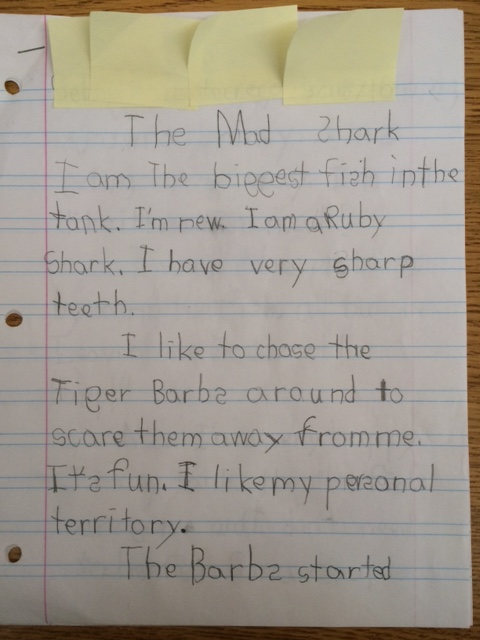 The Mad Shark
I am The biggest fish in the
tank. I'm new. I am a Ruby
Shark. I have very sharp
teeth.
I like to chase the
Tiger Barbs around to
scare them away from me.
It's fun. I like my personal
territory.
The Barbs started